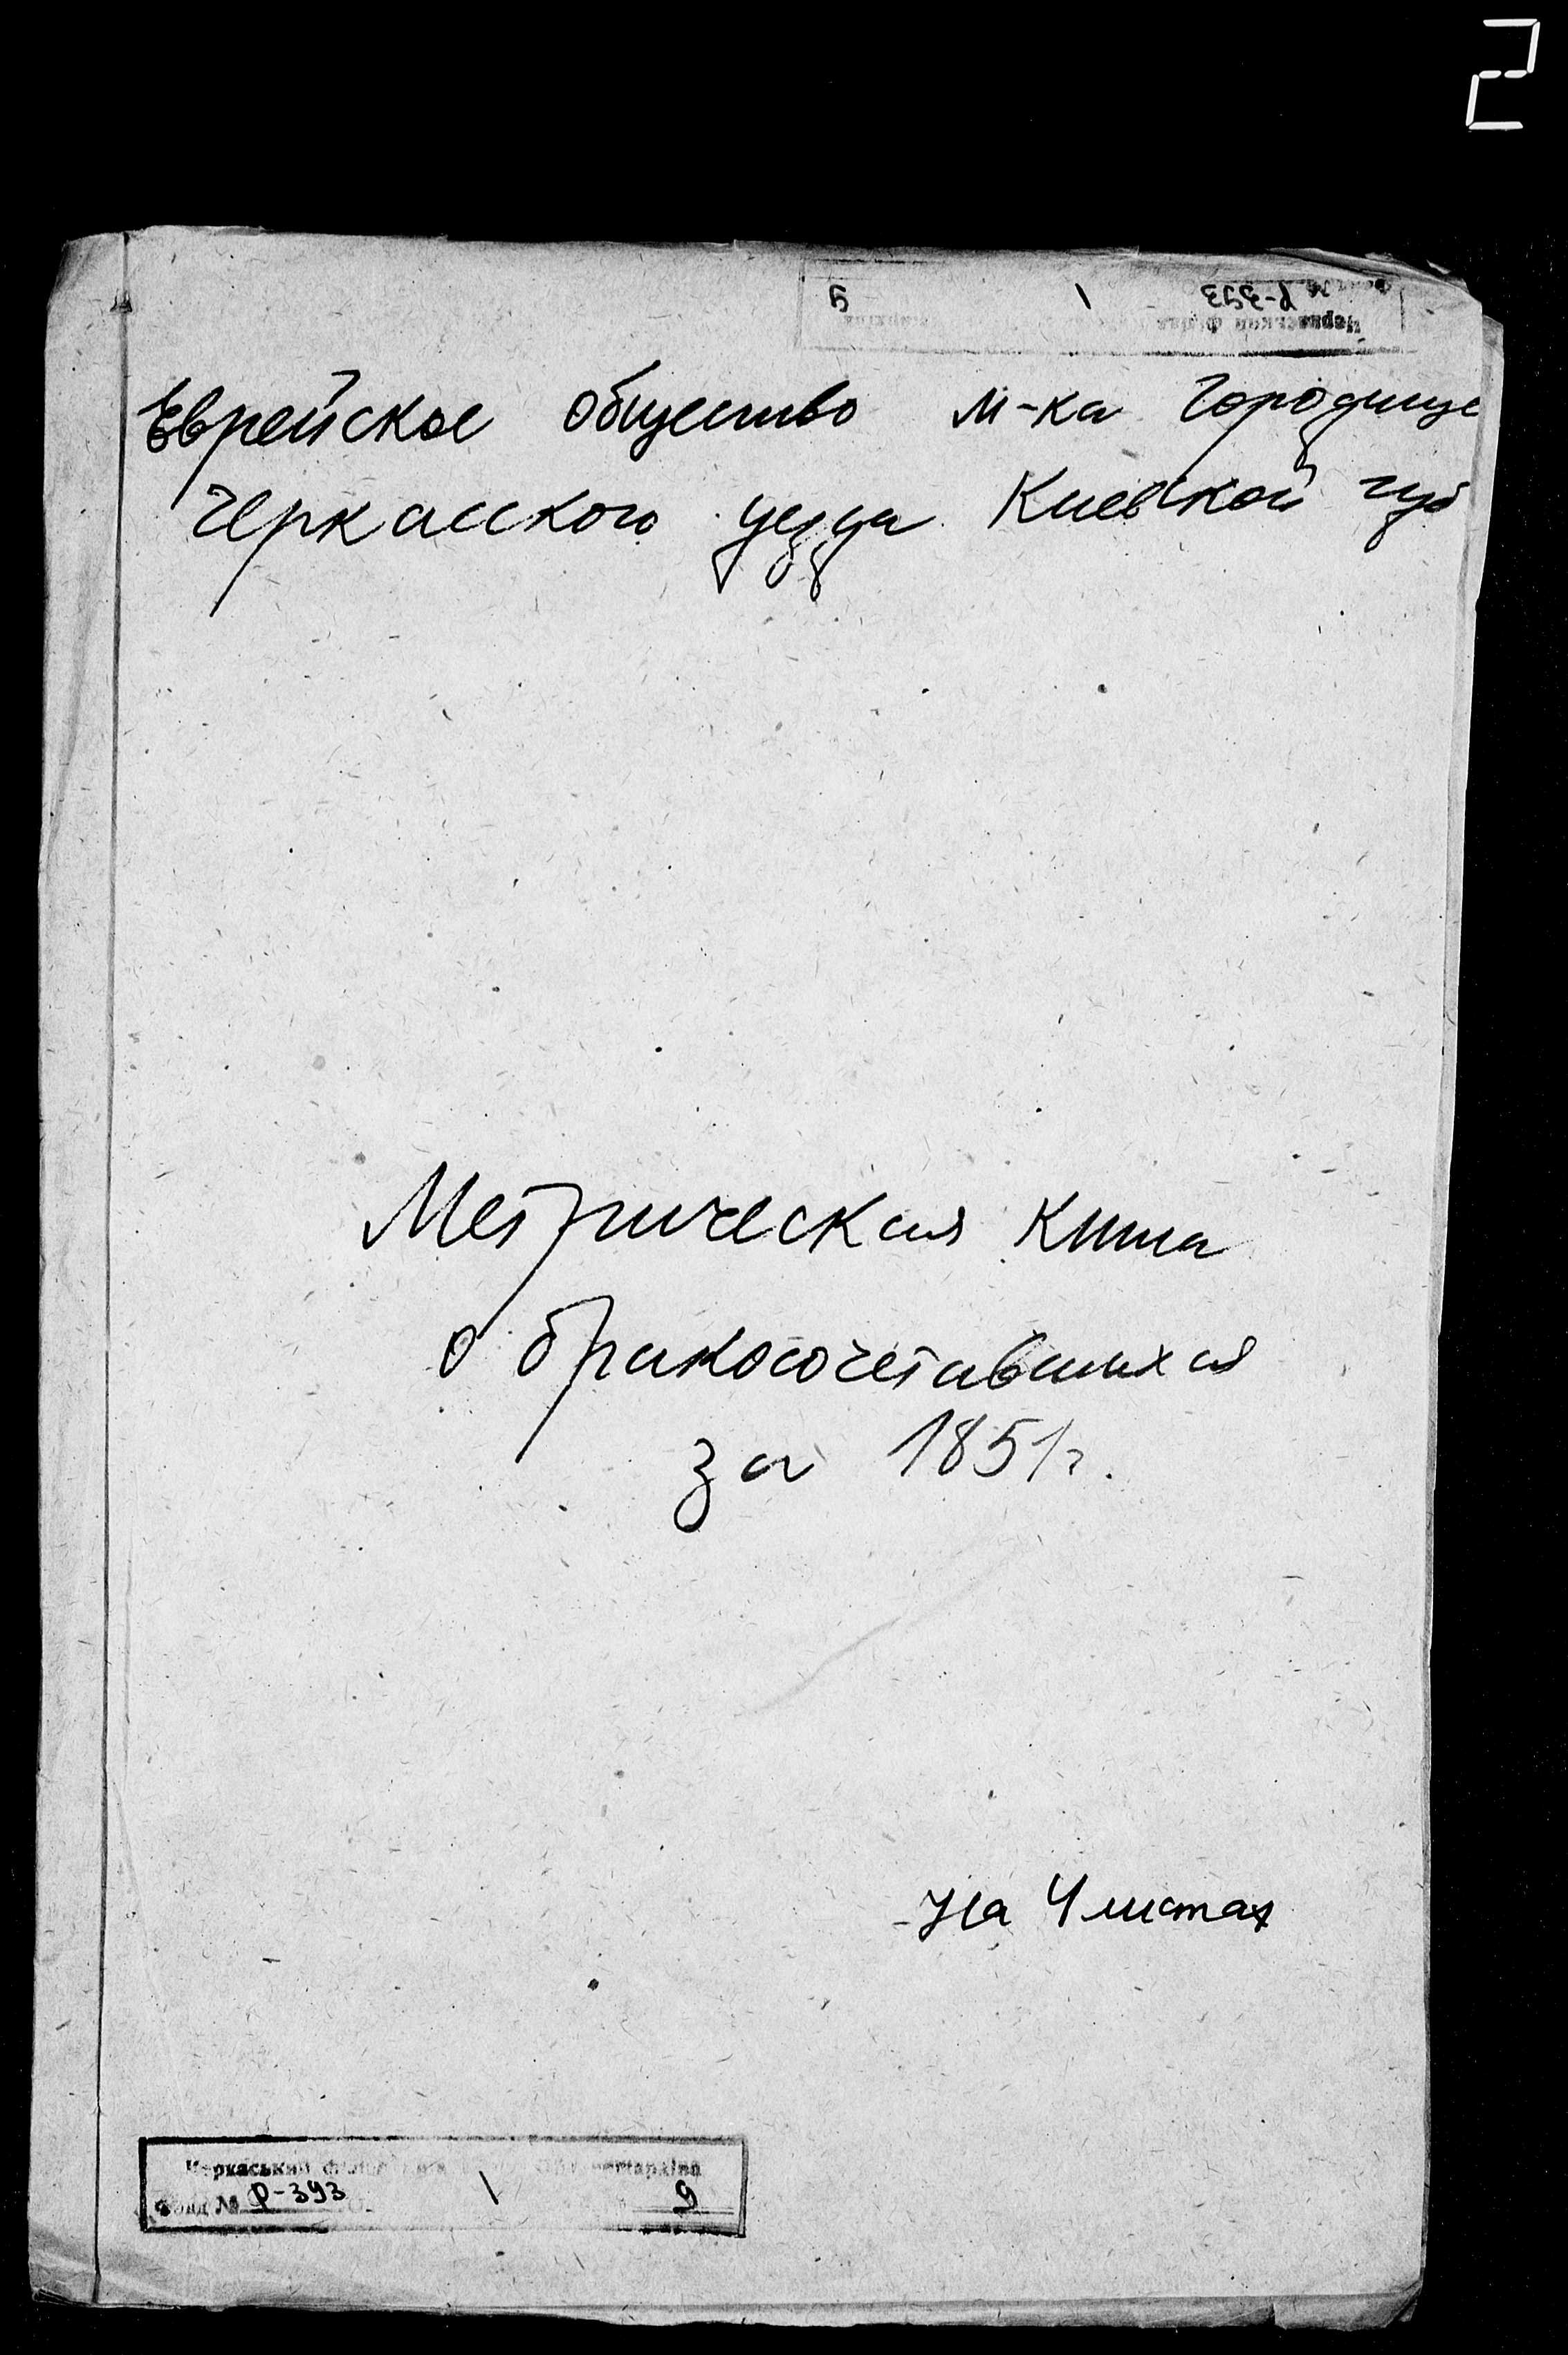 2
9 1 Р-393
Еврейское общество м-ка Городище
Черкасского уезда Киевской губ
Метрическая книга
о бракосочетавшихся
за 1851г.
На 4 листах
Черкаський
Фонд № Р-393 1 9